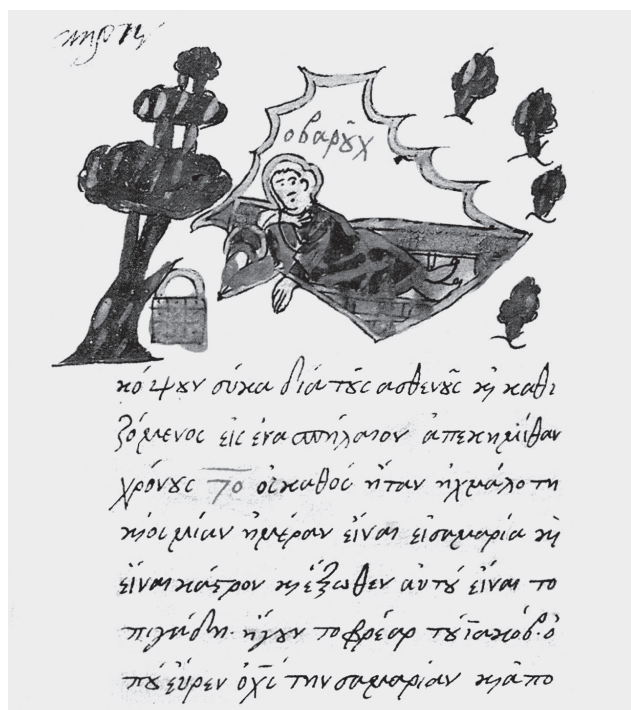 ο βαρȣχ
κόψουν σύκα διά τȣς ασθενȣς κ̀ καθι
ζόμενος εἰς ένα σπήλαιον ἀπεκημίθαν
χρόνȣς 70 οἱ καθός ἤταν ἠχμάλοτη
ἡμέραν εἶναι εἰσαμαρία κ̀
εἶναι κάστρον κ̀ ἔξωθεν αὐτȣ́ εἶναι το
πιγάδη· ἤγȣν το φρέαρ τȣ́ ἰακόβ· ὁ
πȣ́ εὗρεν ὁ χ̅ς̅ την σαμαρίαν κ̀ ἀπο